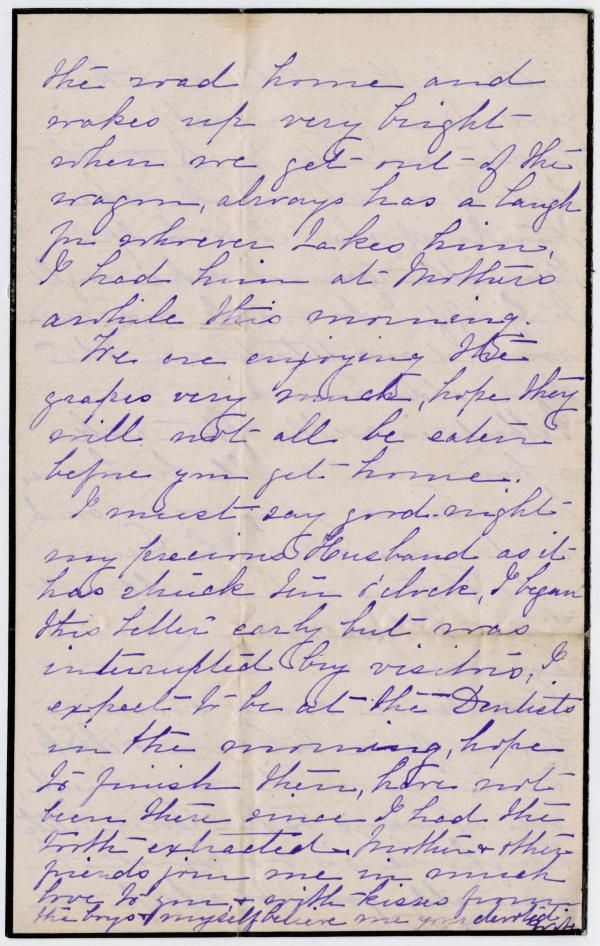 the road home and
wakes up very bright
when we get out of the
wagon, always has a laugh
for whoever takes him,
I had him at Mothers
awhile this morning.
We are enjoying the
grapes very much, hope they
will not all be eaten
before you get home.
I must say good-night
my precious Husband as it
has struck ten o'clock, I began
this letter early but was
interrupted by visitors, I
expect to be at the Dentists
in the morning, hope
to finish then, have not
been there since I had the
tooth extracted. Mother & other
friends join me in much
love to you & with kisses from
the boys & myself believe me your devoted
wife